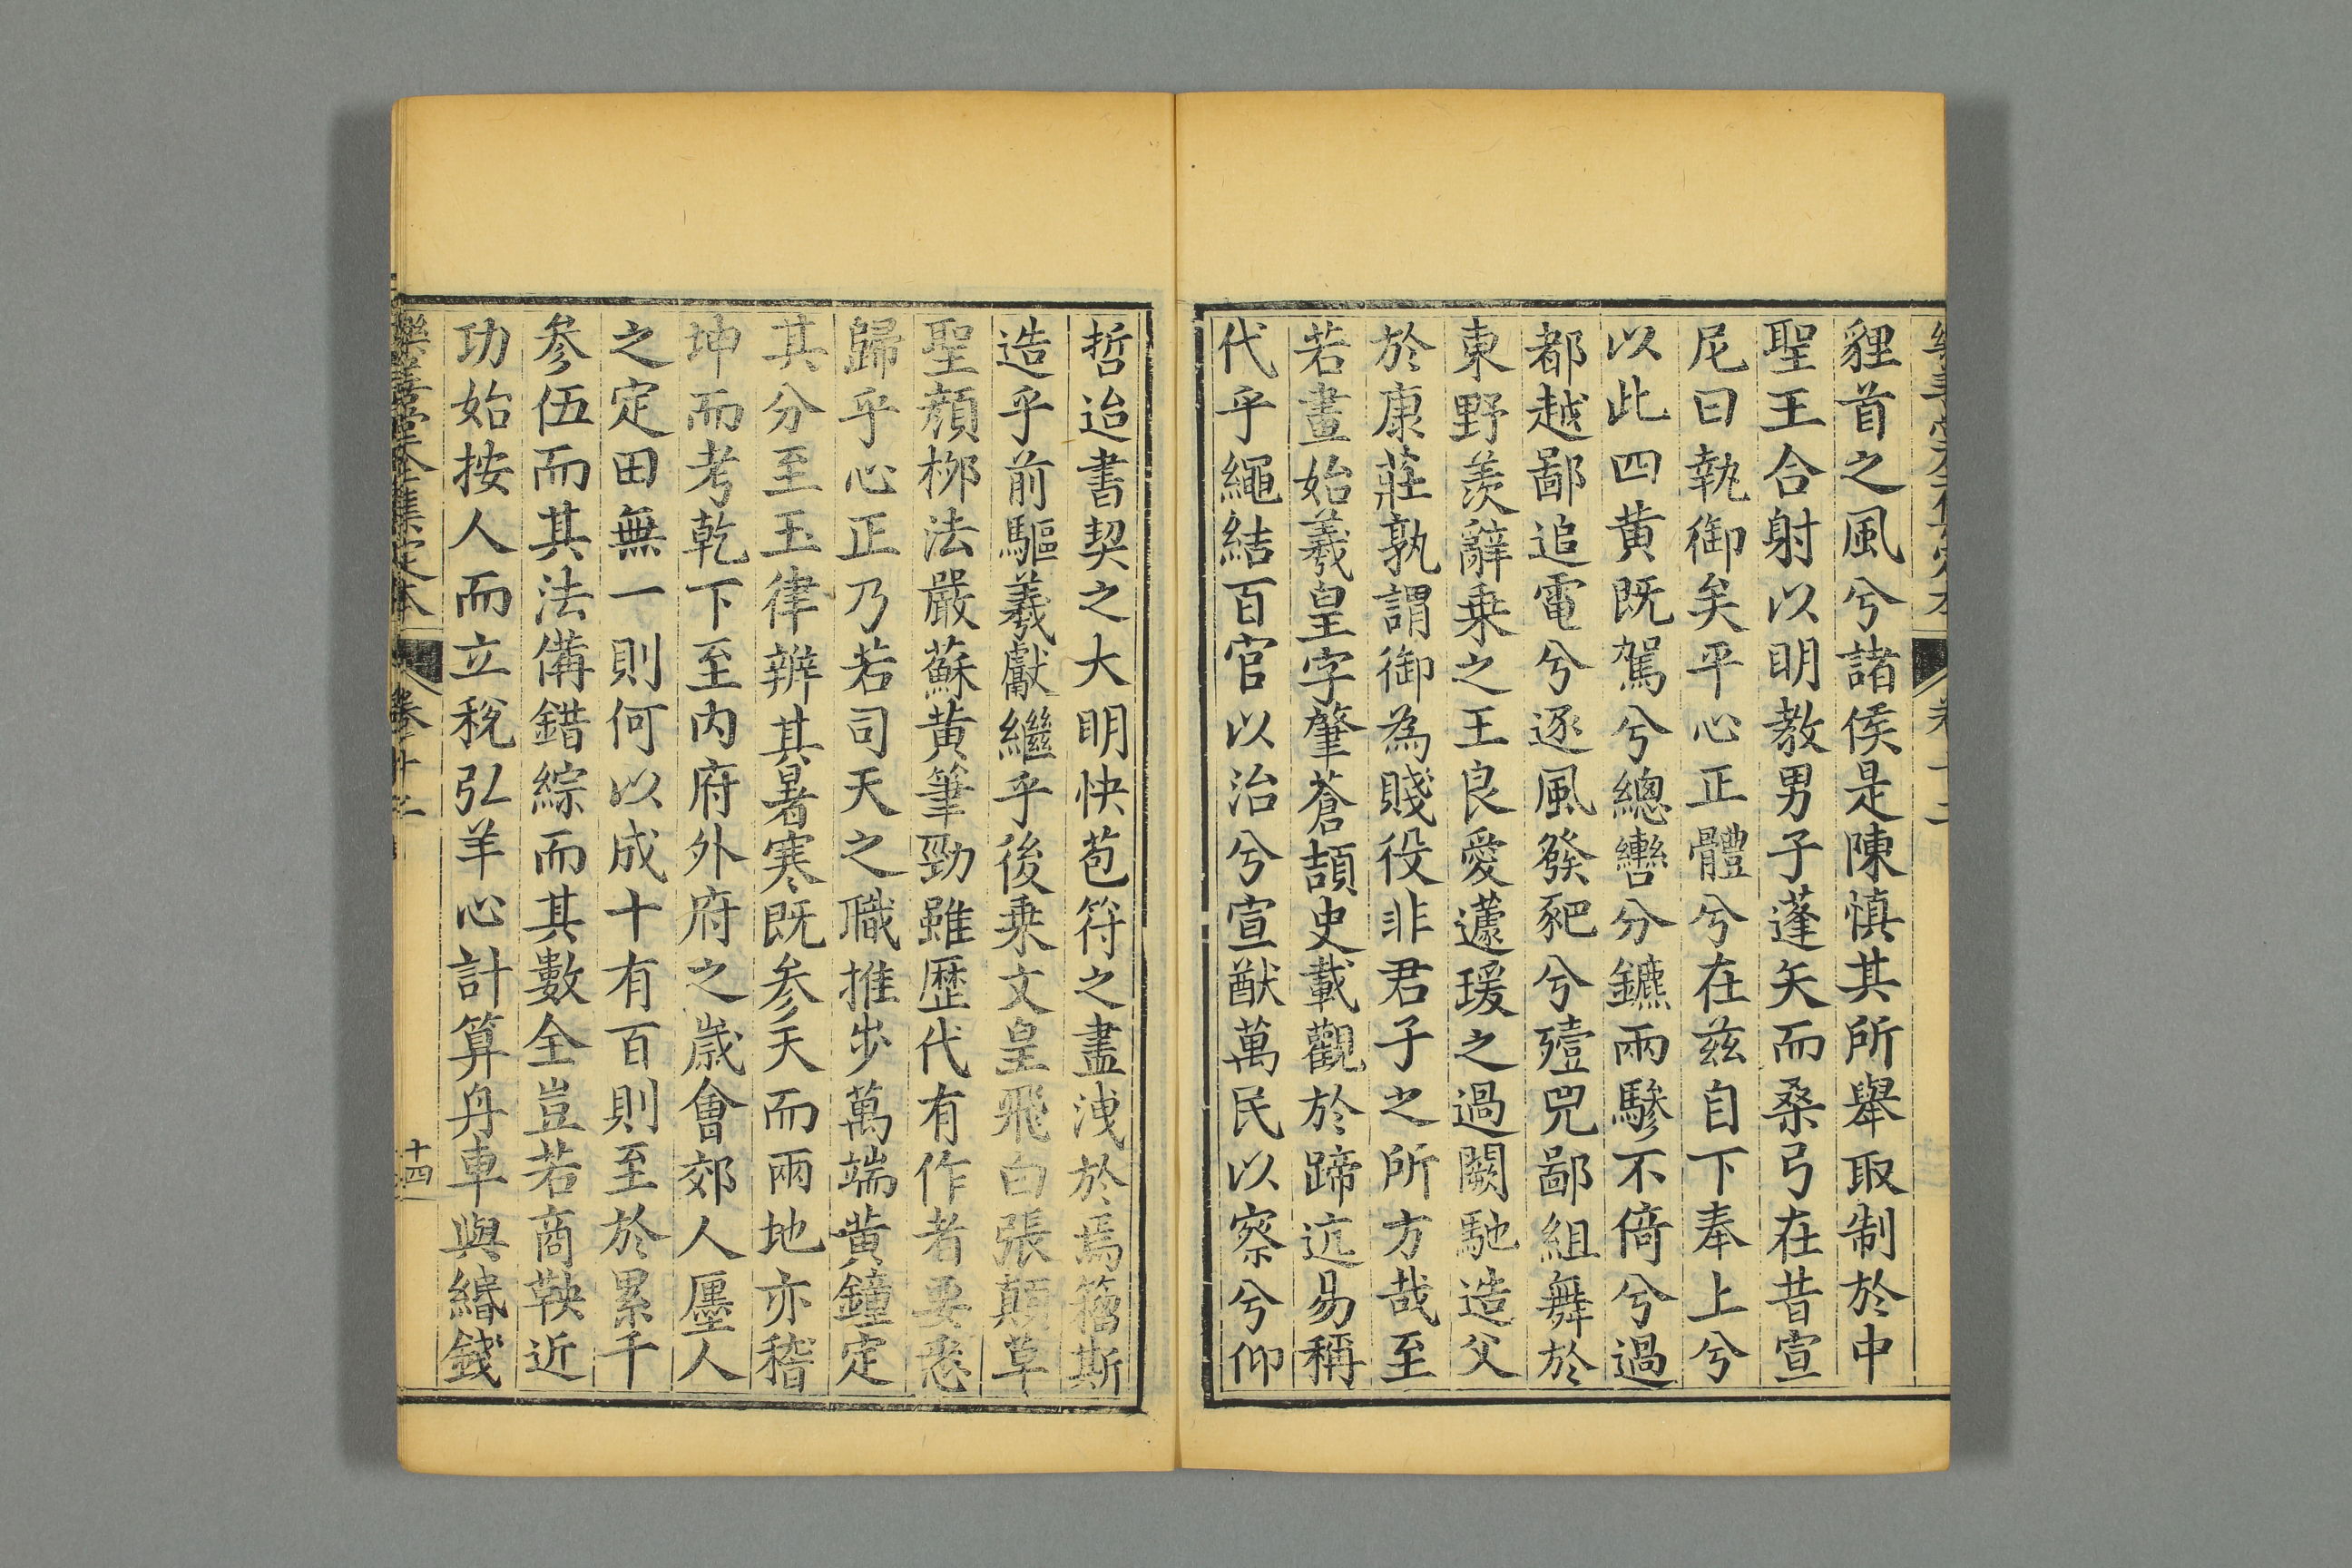 樂善堂全集定本 卷十二
貍首之風兮諸侯是陳慎其所舉取制於中
聖王合射以明教男子蓬矢而桑弓在昔宣
尼曰執御矣平心正體兮在茲自下奉上兮
以此四黄既駕兮總轡分鑣兩驂不倚兮過
都越鄙追電兮逐風發豝兮殪兕鄙組舞於
東野羨辭乗之王良愛蘧瑗之過闕馳造父
於康莊孰謂御為賤役非君子之所方哉至
若畫始羲皇字肇蒼頡史載觀於蹄迒易稱
代乎繩結百官以治兮宣猷萬民以察兮仰
哲迨書契之大明快苞符之盡洩於焉籀斯
造乎前驅羲獻繼乎後乗文皇飛白張顛草
聖顔栁法嚴蘇黄筆勁雖歴代有作者要悉
歸乎心正乃若司天之職推歩萬端黄鐘定
其分至玉律辨其暑寒既参天而兩地亦稽
坤而考乾下至内府外府之歳會郊人廛人
之定田無一則何以成十有百則至於累千
参伍而其法備錯綜而其數全豈若商鞅近
功始按人而立稅弘羊心計算舟車與緡錢
樂善堂全集定本 卷十二 十四